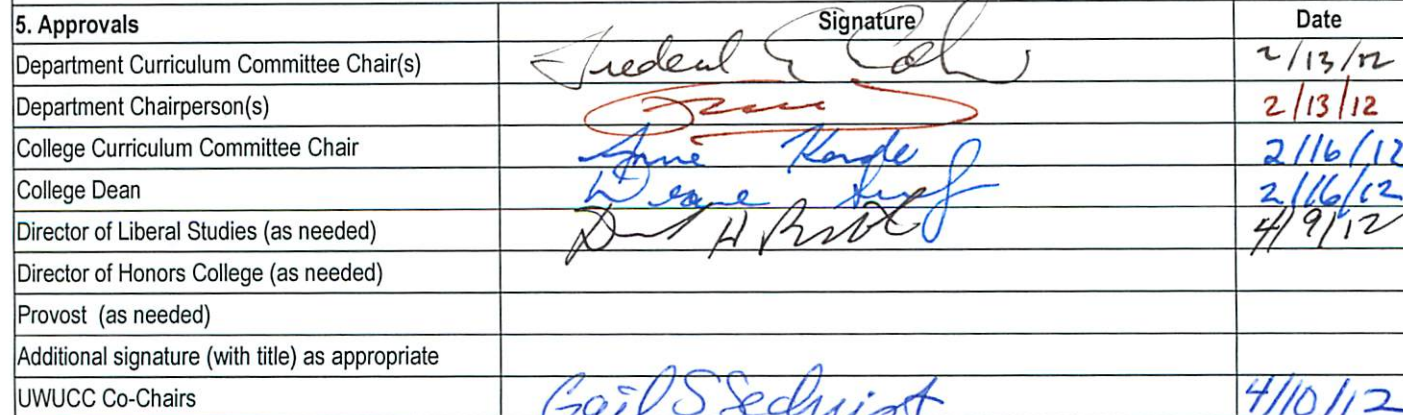 5. Approvals Signature Date
Department Curriculum Committee Chair(s) 2/13/12
Department Chairperson(s) 2/13/12
College Curriculum Committee Chair 2/16/12
College Dean 2/16/12
Director of Liberal Studies (as needed) 4/9/12
Director of Honors College (as needed)
Provost (as needed)
Additional signature (with title) as appropriate
UWUCC Co-Chairs Gail S Sechrist 4/10/12